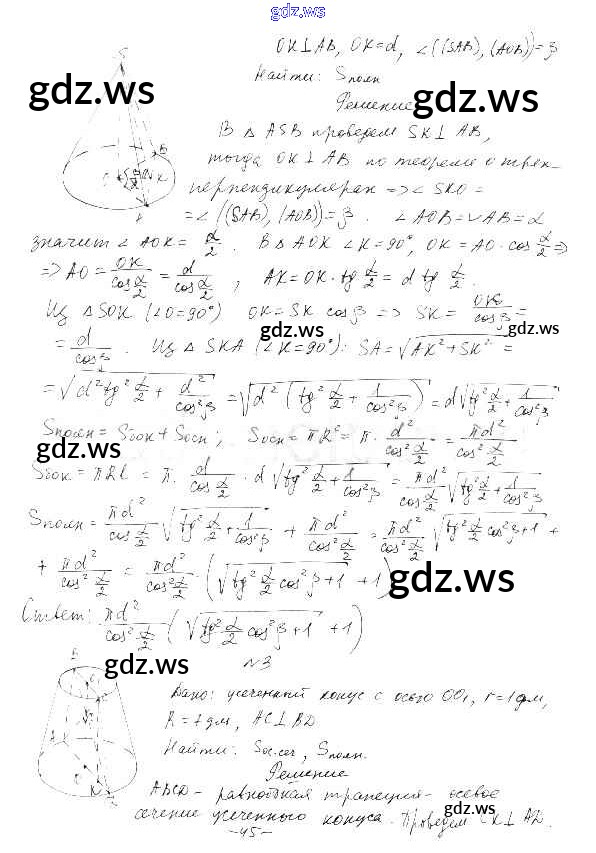 gdz.ws
OK⊥AB, OK=d, ∠((SAB), (AOB))=β
Найти: Sполн
gdz.ws
gdz.ws
Решение
В △ ASB проведем SK⊥AB,
тогда OK⊥AB по теореме о трех
перпендикулярах => ∠ SKO =
= ∠ ((SAB), (AOB)) = β. ∠ AOB = ◡AB = α
значит ∠ AOK = α/2. В △ AOK ∠K=90°, OK = AO·cos α/2 =>
=> AO = OK/cos α/2 = d/cos α/2, AK = OK·tg α/2 = d tg α/2.
Из △ SOK (∠O=90°) OK = SK cosβ => SK = OK/cosβ =
gdz.ws
gdz.ws
= d/cosβ. Из △ SKA (∠K=90°): SA = √(AK²+SK²) =
= √(d² tg² α/2 + d²/cos²β) = √(d² (tg² α/2 + 1/cos²β)) = d√(tg² α/2 + 1/cos²β)
Sполн = Sбок + Sосн; Sосн = πR² = π· d²/cos² α/2 = πd²/cos² α/2
gdz.ws
Sбок = πRl = π· d/cos α/2 · d√(tg² α/2 + 1/cos²β) = πd²/cos α/2 √(tg² α/2 + 1/cos²β)
Sполн = πd²/cos α/2 √(tg² α/2 + 1/cos²β) + πd²/cos² α/2 = πd²/cos α/2 √(tg² α/2 cos²β+1) +
+ πd²/cos² α/2 = πd²/cos² α/2 (√(tg² α/2 cos²β+1) + 1)
gdz.ws
Ответ: πd²/cos² α/2 (√(tg² α/2 cos²β+1) + 1)
gdz.ws
№3
Дано: усеченный конус с осью OO₁, r=1дм,
R=7дм, AC⊥BD
Найти: Sос.сеч, Sполн.
Решение
ABCD - равнобокая трапеция - осевое
gdz.ws
gdz.ws
сечение усеченного конуса. Проведем CK⊥AD.
-45-